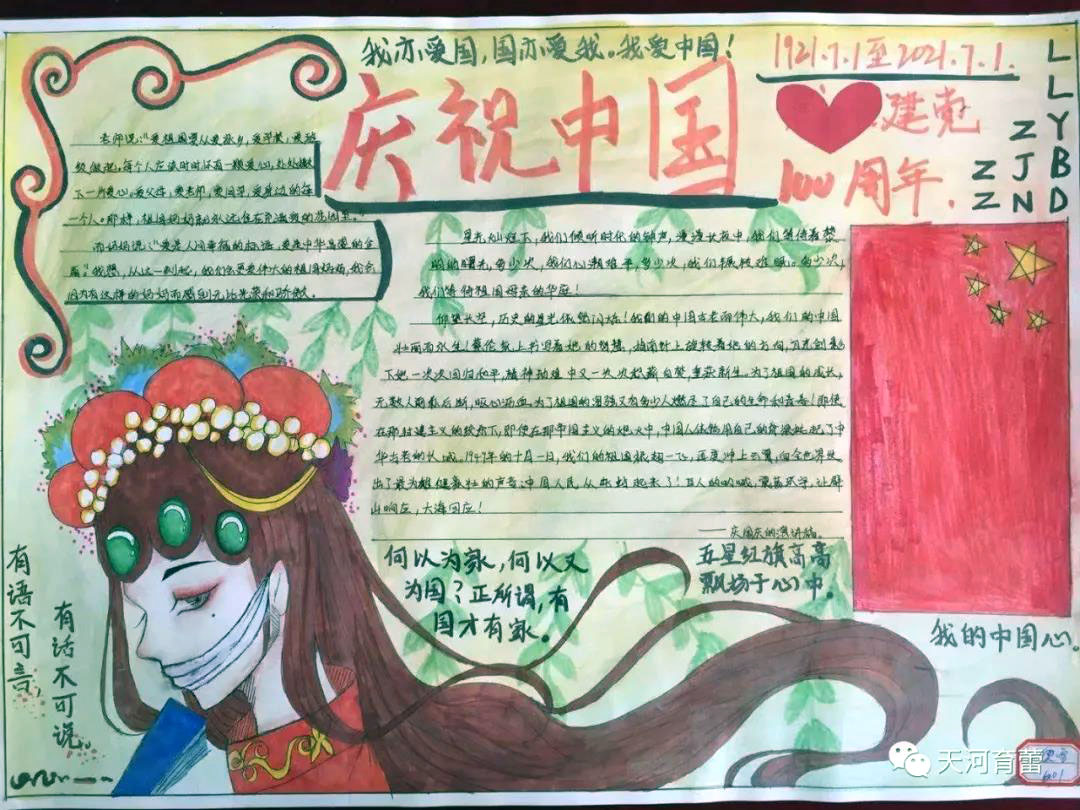 我亦爱国，国亦爱我。我爱中国！
1921.7.1至2021.7.1.
庆祝中国
建党
100周年.
LLYBD
ZJN
ZZ
老师说：“爱祖国要从爱家乡，爱学校，爱班
级做起。每个人应该时时怀有一颗爱心，处处撒
下一片爱心。爱父母，爱老师，爱同学，爱身边的每
一个人。那样，祖国妈妈就永远住在充满爱的花园里。”
而妈妈说：“爱是人间幸福的标语，爱是中华昌盛的
”我想，从这一刻起，我们会更爱伟大的祖国妈妈，我会
因为有这样的妈妈而感到无比光荣和骄傲。
星光灿烂下，我们倾听时代的钟声，漫漫长夜中，我们等待着梦
的曙光，多少次，我们心潮难平，多少次，我们辗转难眠。多少次，
我们等待祖国母亲的华诞！
仰望长空，历史的星光依然闪烁！我们的中国古老而伟大，我们的中国
壮丽而永生！蔡伦纸上书写着她的智慧，指南针上旋转着她的方向，
下她一次次回归和平，精神动雄中又一次次振奋自梦，重获新生。为了祖国的成长，
无数人前赴后继，呕心沥血。为了祖国的富强又有多少人燃尽了自己的生命和青春！即使
在那封建主义的统治下，即使在那帝国主义的炮火中，中国人依然用自己的脊梁挺起了中
华古老的长城。1949年的十月一日，我们的祖国振翅一飞，再度冲上云霄，向全世界发
出了最为雄健豪壮的声音：中国人民，从此站起来了！巨人的呐喊，震荡环宇，让群
山响应，大海回应！
——庆国庆的演讲稿。
何以为家，何以又
为国？正所谓，有
国才有家。
五星红旗高高
飘扬于心门中。
我的中国心。
有语不可言，
有话不可说。
601
天河育蕾